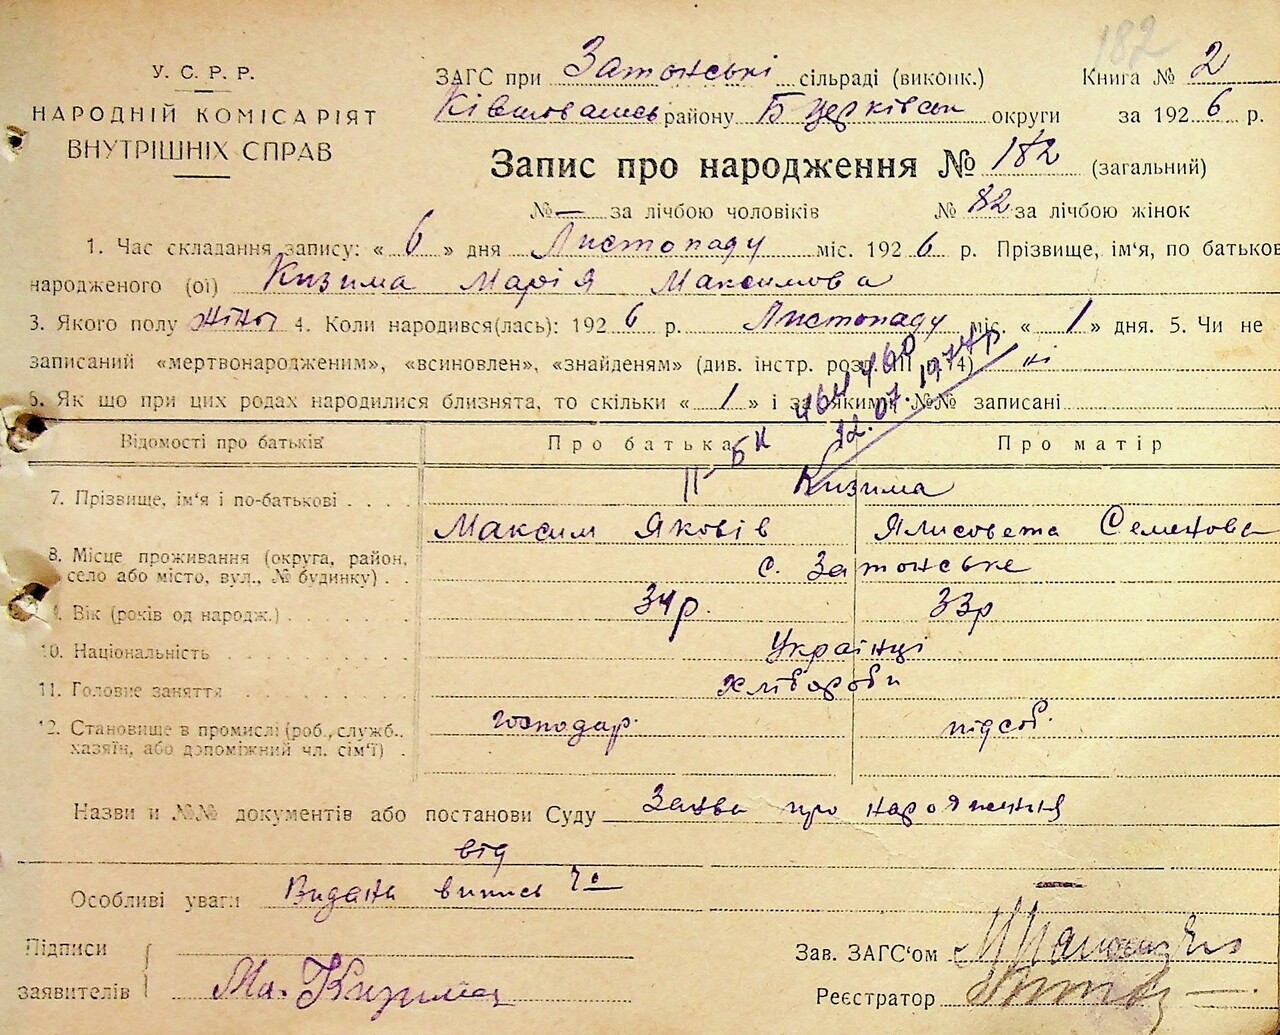 182
У. С. Р. Р.
НАРОДНІЙ КОМІСАРІЯТ
ВНУТРІШНІХ СПРАВ
ЗАГС при Затонські сільраді (виконк.) Книга № 2
району Б Церківськ округи за 1926 р.
Запис про народження № 182 (загальний)
№ — за лічбою чоловіків № 82 за лічбою жінок
1. Час складання запису: « 6 » дня Листопаду міс. 1926 р. Прізвище, ім'я, по батьков
народженого (ої) Кизима Марія Максимова
3. Якого полу жіноч 4. Коли народився(лась): 1926 р. Листопаду міс. « 1 » дня. 5. Чи не
записаний «мертвонародженим», «всиновлен», «знайденям» (див. інстр. розд. III 74) ні
6. Як що при цих родах народилися близнята, то скільки « 1 » і за якими №№ записані
ІІ-БК 464460
12.07.1977р
Відомості про батьків Про батька Про матір
7. Прізвище, ім'я і по-батькові Кизима
Максим Яковів Ялисовета Семенова
8. Місце проживання (округа, район,
село або місто, вул., № будинку) с. Затонське
9. Вік (років од народж.) 34р. 33р
10. Національність Українці
11. Головне заняття Хлібороби
12. Становище в промислі (роб., служб., господар. підсоб.
хазяїн, або допоміжний чл. сім'ї)
Назви и №№ документів або постанови Суду Заява про народження
від
Особливі уваги Видана випись
Підписи
заявителів Ма. Кизима
Зав. ЗАГС'ом
Реєстратор